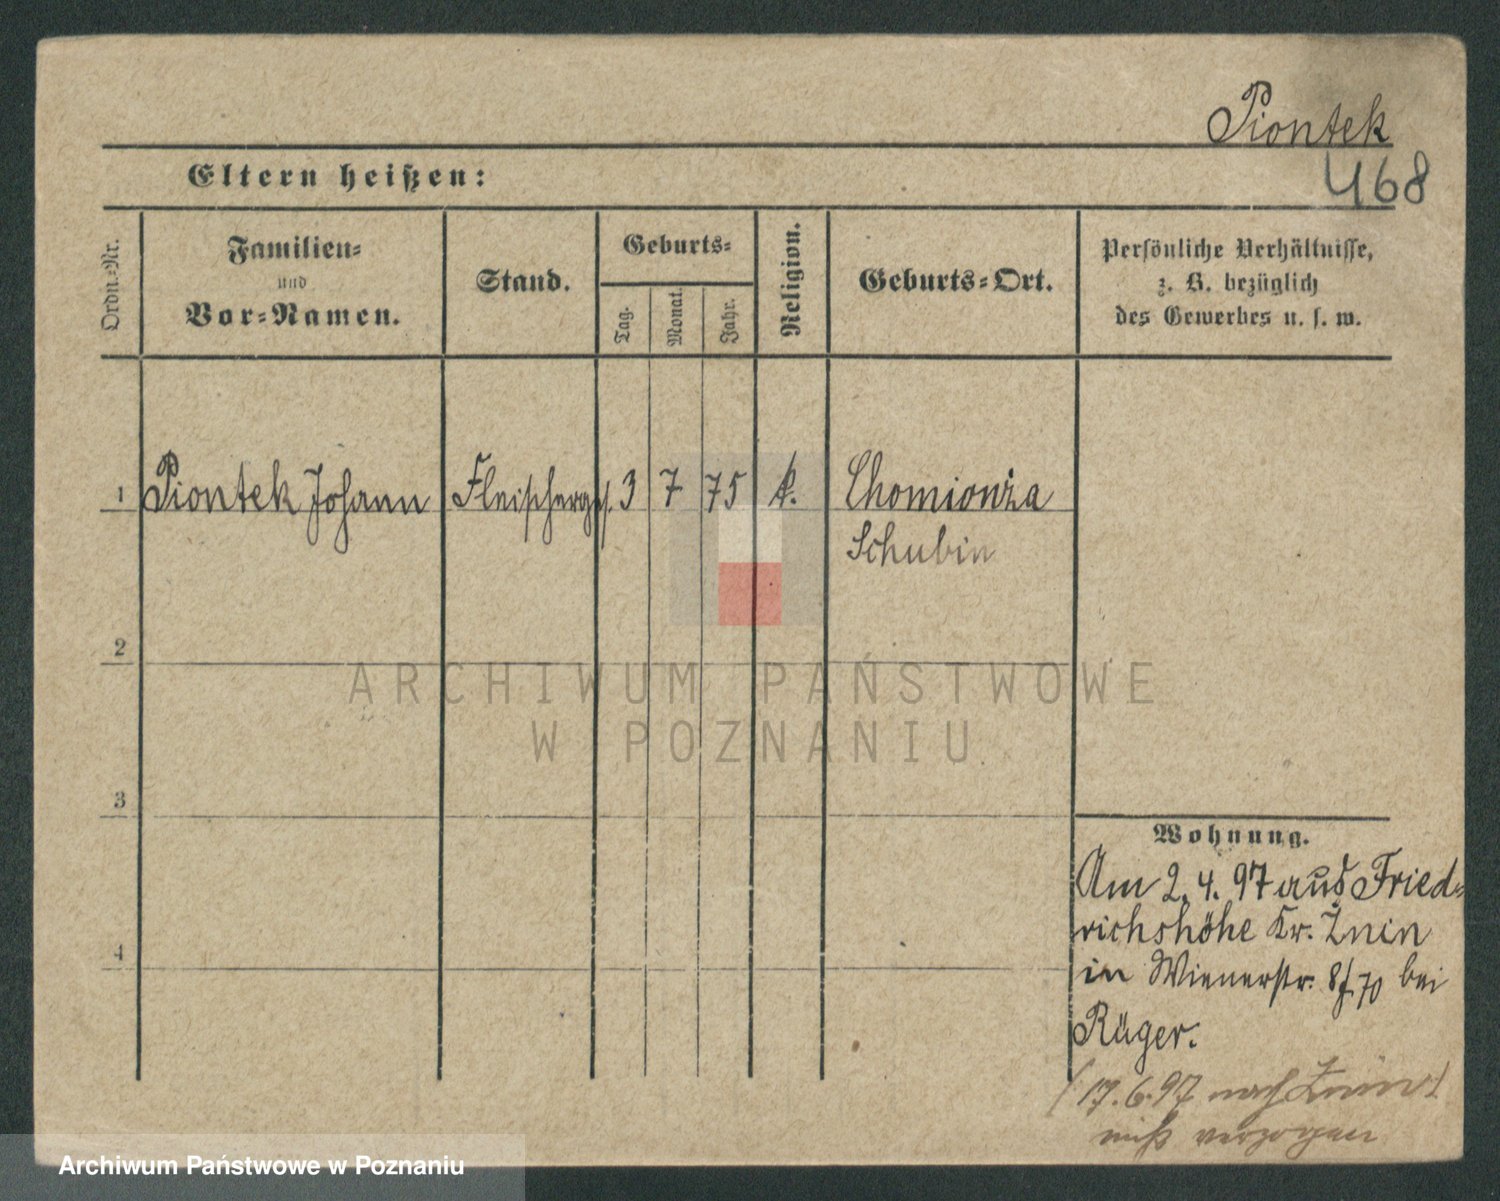 Piontek
468
Eltern heißen:
Ordn.=Nr.
Familien=
und
Vor=Namen.
Stand.
Geburts=
Tag.
Monat.
Jahr.
Religion.
Geburts=Ort.
Persönliche Verhältnisse,
z. B. bezüglich
des Gewerbes u. s. w.
1 Piontek Johann Fleischerges. 3 7 75 k. Chomionża
Schubin
2
3
4
Wohnung.
Am 2. 4. 97 aus Fried=
richshöhe Kr. Żnin
in Wienerstr. 8/70 bei
Rüger.
17.6.97 nach Znin
verzogen
ARCHIWUM PAŃSTWOWE
W POZNANIU
Archiwum Państwowe w Poznaniu